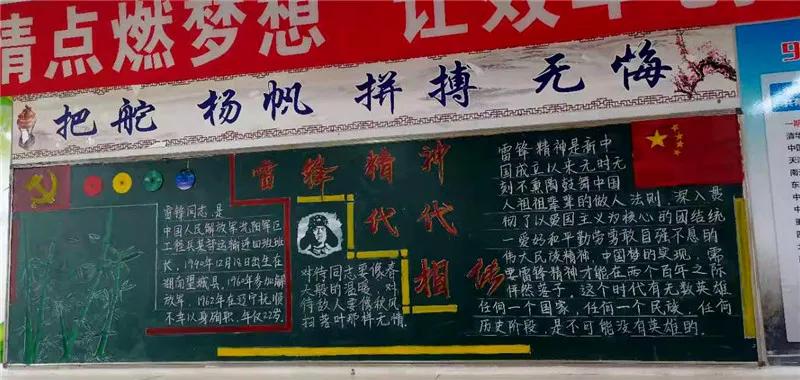 情点燃梦想 让效率
把舵 杨帆 拼搏 无悔
雷锋精神
代代
相传
雷锋同志,是
中国人民解放军沈阳军区
工程兵某部运输连四班班
长,1940年12月18日出生在
湖南望城县,1960年参加解
放军,1962年在辽宁抚顺
不幸以身殉职,年仅22岁。
对待同志要像春
天般的温暖,对
待敌人要像秋风
扫落叶那样无情
雷锋精神是新中
国成立以来无时无
刻不熏陶鼓舞中国
人祖祖辈辈的做人法则,深入贯
彻了以爱国主义为核心的团结统
一爱好和平勤劳勇敢自强不息的
伟大民族精神,中国梦的实现,需
要雷锋精神才能在两个百年之际
怦然落子,这个时代有无数英雄
任何一个国家,任何一个民族,任何
历史阶段,是不可能没有英雄的.
清华